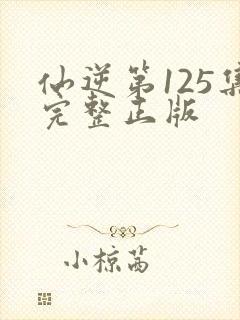 仙逆第125集
完整正版
小椋茜